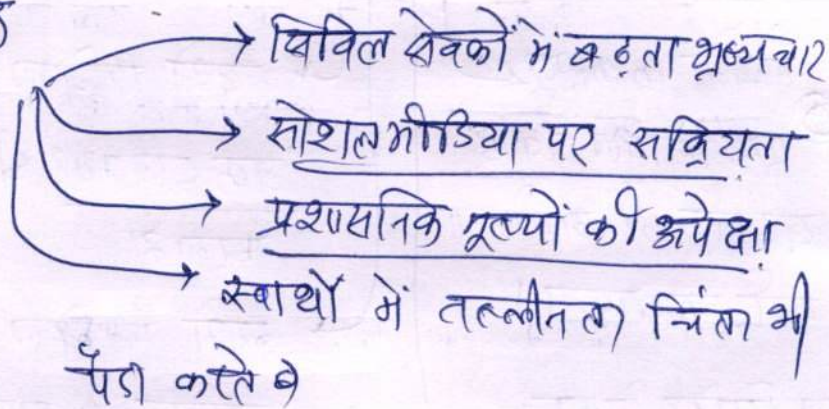 सिविल सेवकों में बढ़ता भ्रष्टाचार
सोशल मीडिया पर सक्रियता
प्रशासनिक मूल्यों की उपेक्षा
स्वार्थों में तल्लीनता चिंता भी
पैदा करते है